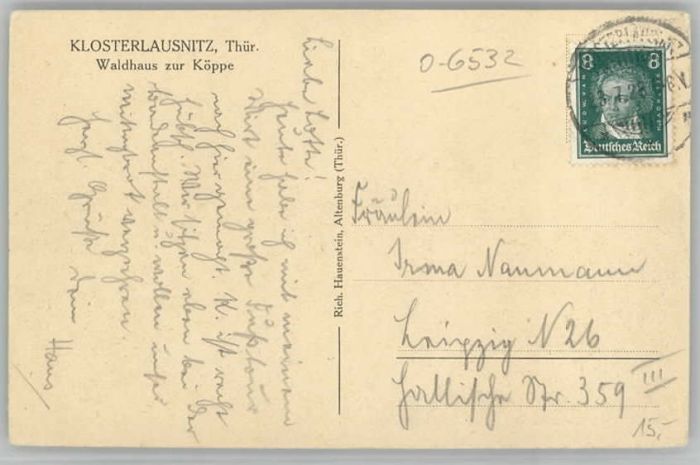 KLOSTERLAUSNITZ, Thür.
Waldhaus zur Köppe
Liebe Lotte!
Heute habe ich mit meinem
Wirt eine große Fußtour
nach hier gemacht. K. ist recht
hübsch. Wir sitzen eben bei der
u. wollen unser
Mittagbrot verzehren
Herzl. Grüße Dein
Hans
Rich. Hauenstein, Altenburg (Thür.)
0-6532
8 8
Deutsches Reich
Fräulein
Irma Naumann
Leipzig N26
Hallische Str. 359 III
15,-